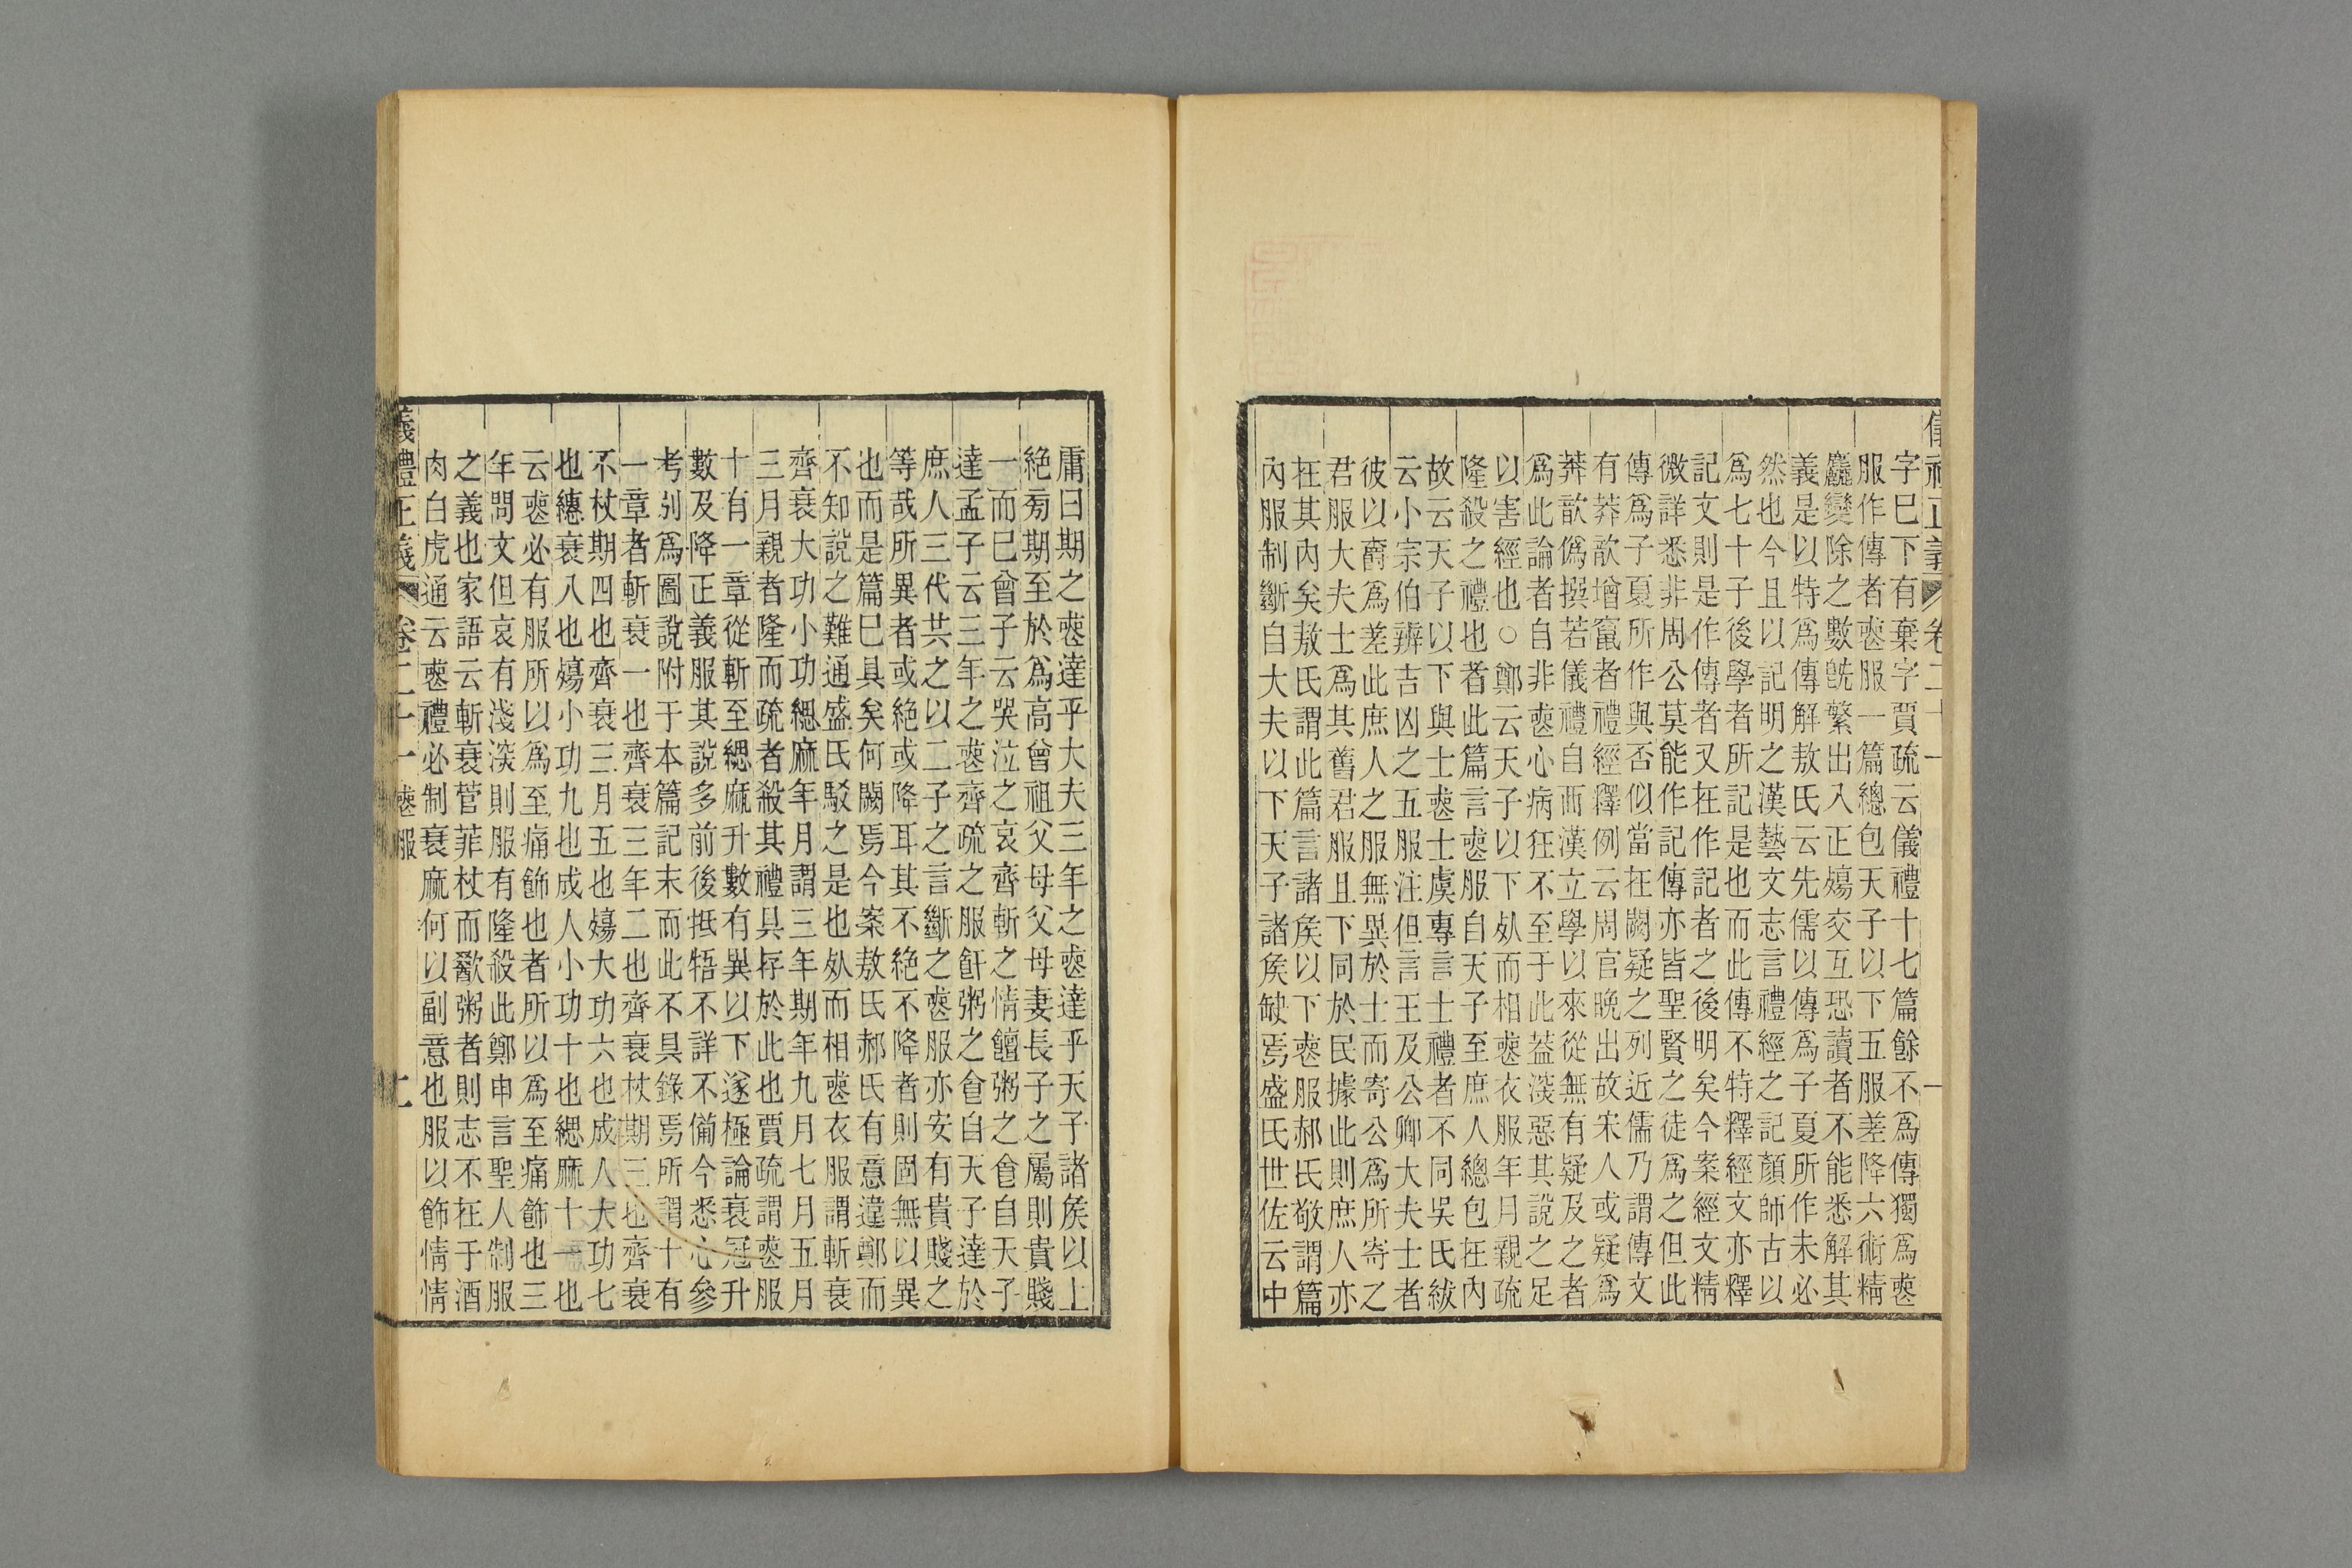 儀禮正義 卷二十一
字已下有棄字賈疏云儀禮十七篇餘不爲傳獨爲䘮
服作傳者䘮服一篇總包天子以下五服差降六術精
麤變除之數旣繁出入正殤交互恐讀者不能悉解其
義是以特爲傳解敖氏云先儒以傳爲子夏所作未必
然也今且以記明之漢藝文志言禮經之記顏師古以
爲七十子後學者所記是也而此傳不特釋經文亦釋
記文則是作傳者又在作記者之後明矣今案經文精
微詳悉非周公莫能作記傳亦皆聖賢之徒爲之但此
傳爲子夏所作與否似當在闕疑之列近儒乃謂傳文
有莽歆增竄者禮經釋例云周官晚出故宋人或疑爲
莽歆僞撰若儀禮自西漢立學以來從無有疑及之者
爲此論者自非䘮心病狂不至于此葢深惡其說之足
以害經也○鄭云天子以下𠛱而相䘮衣服年月親疏
隆殺之禮也者此篇言䘮服自天子至庶人總包在內
故云天子以下與士䘮士虞專言士禮者不同吳氏紱
云小宗伯辨吉凶之五服注但言王及公卿大夫士者
彼以齊爲差此庶人之服無異於士而寄公爲所寄之
君服大夫士爲其舊君服且下同於民據此則庶人亦
在其內矣敖氏謂此篇言諸矦以下䘮服郝氏敬謂篇
內服制斷自大夫以下天子諸矦缺焉盛氏世佐云中
庸曰期之䘮達乎大夫三年之䘮達乎天子諸矦以上
絕旁期至於爲高曾祖父母父母妻長子之屬則貴賤
一而已曾子云哭泣之哀齊斬之情饘粥之食自天子
達孟子云三年之䘮齊疏之服飦粥之食自天子達於
庶人三代共之以二子之言斷之䘮服亦安有貴賤之
等哉所異者或絕或降耳其不絕不降者則固無以異
也而是篇已具矣何闕焉今案敖氏郝氏有意違鄭而
不知說之難通盛氏駁之是也𠛱而相䘮衣服謂斬衰
齊衰大功小功緦麻年月謂三年期年九月七月五月
三月親者隆而疏者殺其禮具存於此也賈疏謂䘮服
十有一章從斬至緦麻升數有異以下遂極論衰冠升
數及降正義服其說多前後抵牾不詳不備今悉心參
考別爲圖說附于本篇記末而此不具錄焉所謂十有
一章者斬衰一也齊衰三年二也齊衰杖期三也齊衰
不杖期四也齊衰三月五也殤大功六也成人大功七
也繐衰八也殤小功九也成人小功十也緦麻十一也
云䘮必有服所以爲至痛飾也者所以爲至痛飾也三
年問文但哀有淺深則服有隆殺此鄭申言聖人制服
之義也家語云斬衰菅菲杖而歠粥者則志不在于酒
肉白虎通云䘮禮必制衰麻何以副意也服以飾情情
儀禮正義 卷二十一 䘮服